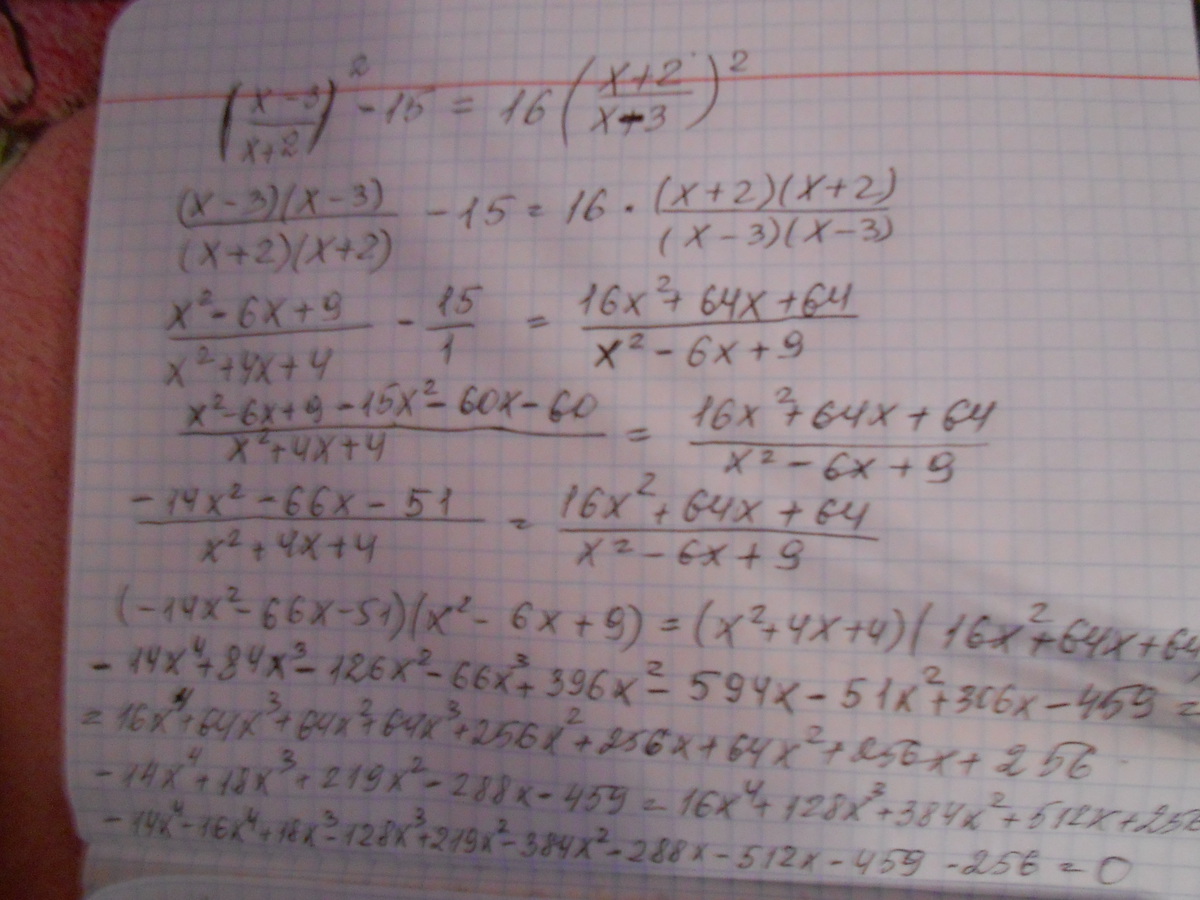 ((x-3)/(x+2))² - 15 = 16 ((x+2)/(x-3))²
(x-3)(x-3)/(x+2)(x+2) - 15 = 16 · (x+2)(x+2)/(x-3)(x-3)
(x² - 6x + 9)/(x² + 4x + 4) - 15/1 = (16x² + 64x + 64)/(x² - 6x + 9)
(x² - 6x + 9 - 15x² - 60x - 60)/(x² + 4x + 4) = (16x² + 64x + 64)/(x² - 6x + 9)
(-14x² - 66x - 51)/(x² + 4x + 4) = (16x² + 64x + 64)/(x² - 6x + 9)
(-14x² - 66x - 51)(x² - 6x + 9) = (x² + 4x + 4)(16x² + 64x + 64)
-14x⁴ + 84x³ - 126x² - 66x³ + 396x² - 594x - 51x² + 306x - 459 =
= 16x⁴ + 64x³ + 64x² + 64x³ + 256x² + 256x + 64x² + 256x + 256
-14x⁴ + 18x³ + 219x² - 288x - 459 = 16x⁴ + 128x³ + 384x² + 512x + 256
-14x⁴ - 16x⁴ + 18x³ - 128x³ + 219x² - 384x² - 288x - 512x - 459 - 256 = 0